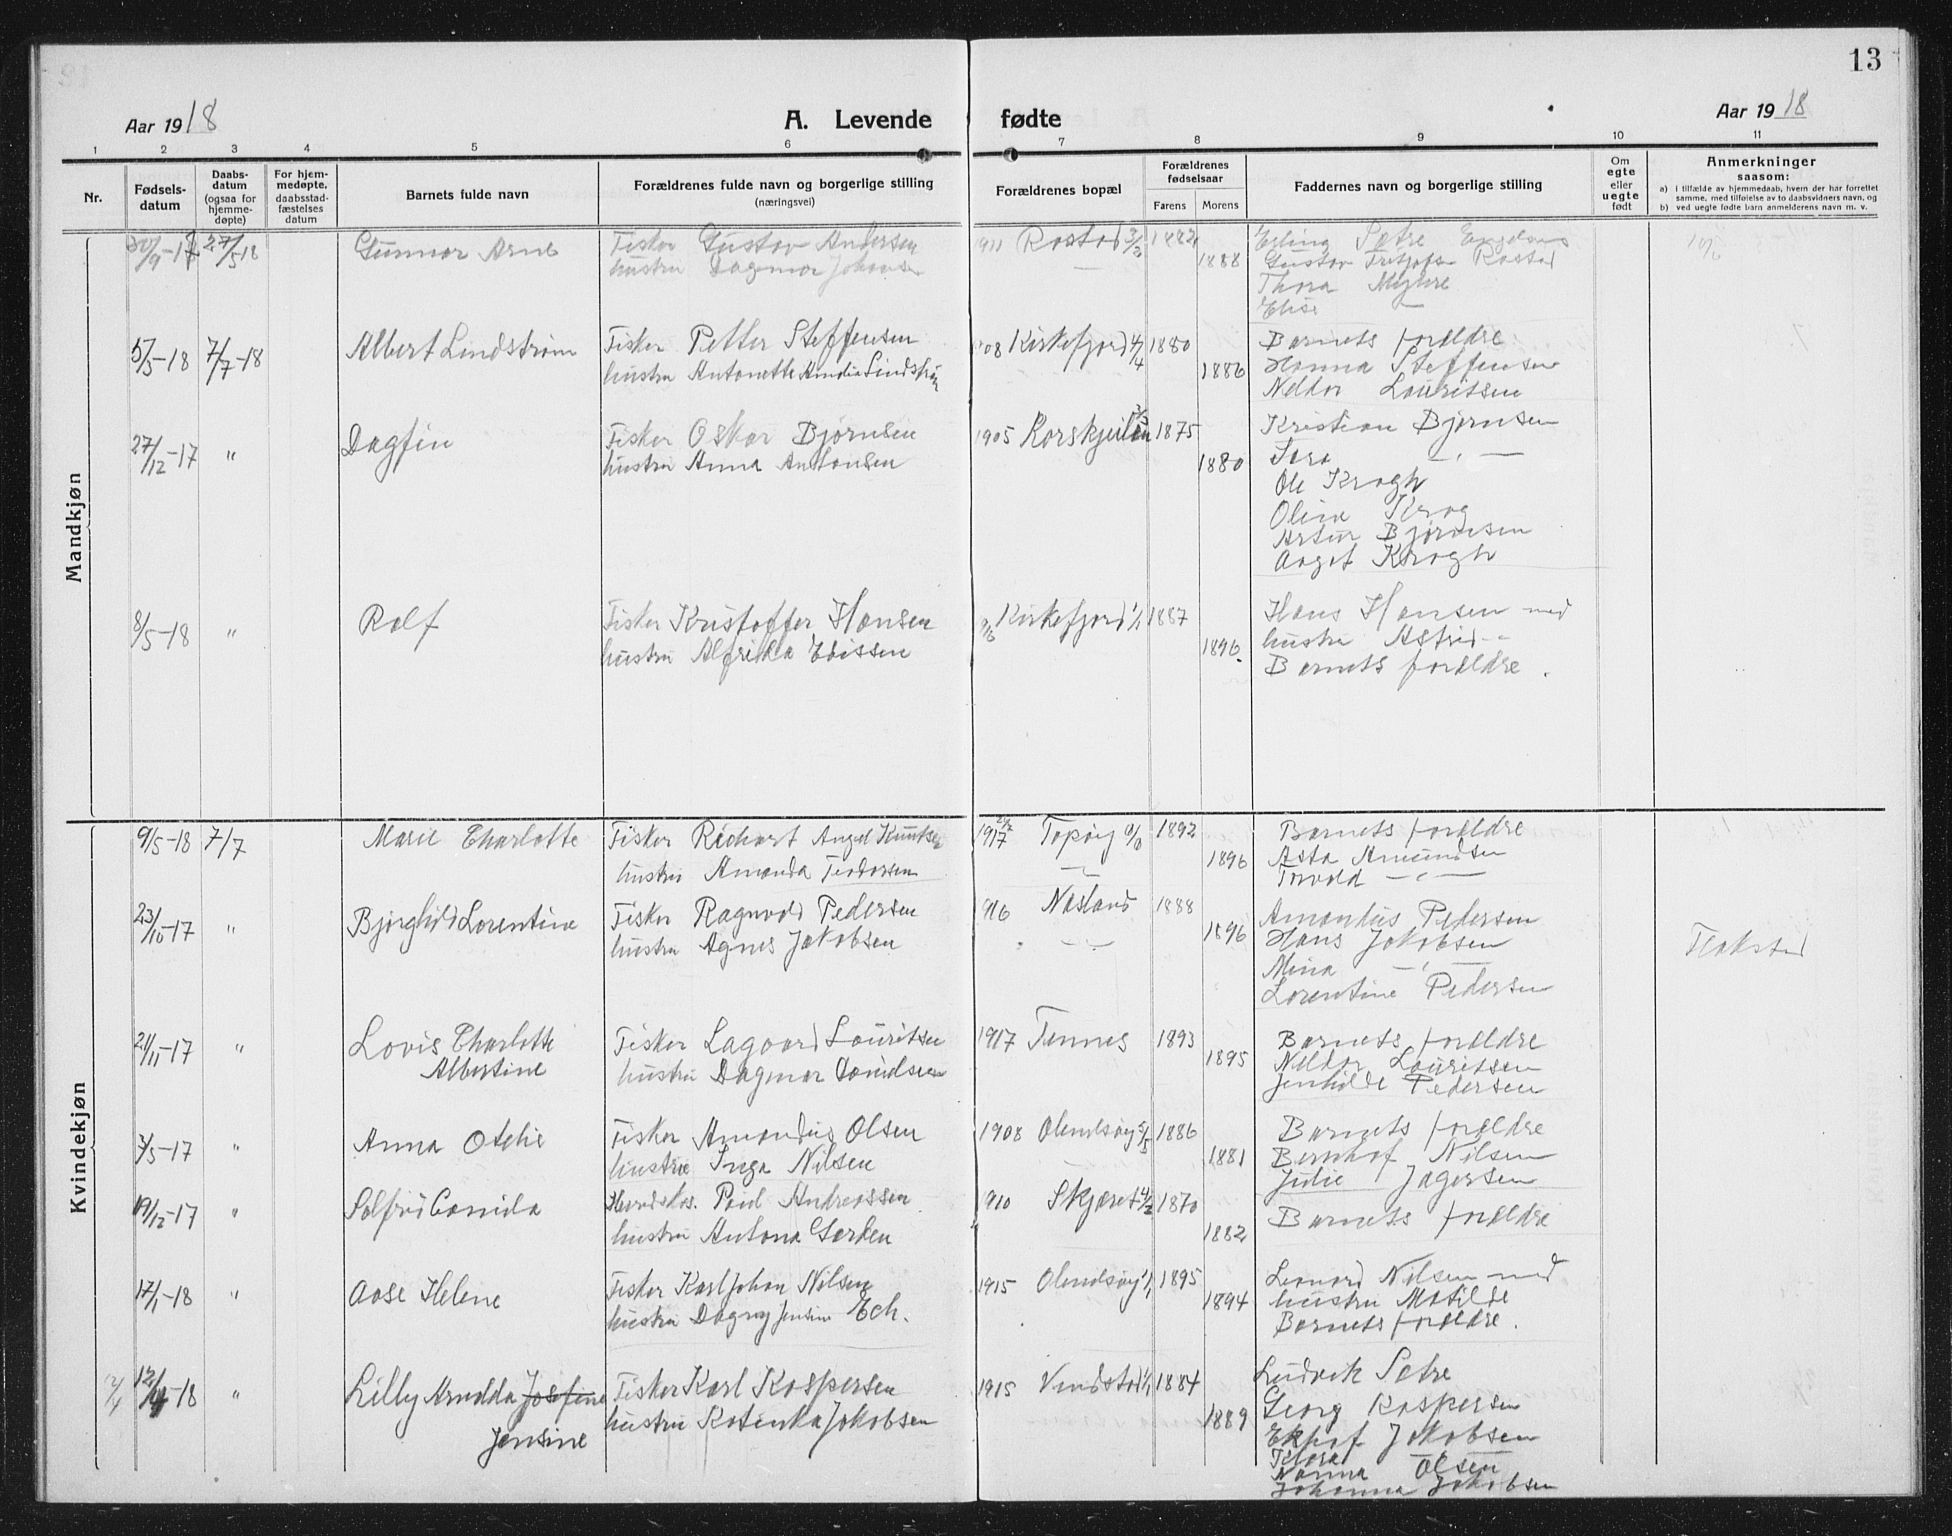 13
Aar 1918
A. Levende fødte
Aar 1918
1 2 3 4 5 6 7 8 9 10 11
Nr.
Fødsels-
datum
Daabs-
datum
(ogsaa for
hjemme-
døpte)
For hjem-
medøpte,
daabsstad-
fæstelses
datum
Barnets fulde navn
Forældrenes fulde navn og borgerlige stilling
(næringsvei)
Forældrenes bopæl
Forældrenes
fødselsaar
Farens Morens
Faddernes navn og borgerlige stilling
Om
egte
eller
uegte
født
Anmerkninger
saasom:
a) i tilfælde av hjemmedaab, hvem der har forrettet
samme, med tilføielse av to daabsvidners navn, og
b) ved uegte fødte barn anmelderens navn m. v.
Mandkjøn
30/9-17 27/5 18 Gunnar Arne Fisker Gustav Andersen 1911 Rostad 3/3 1882 Erling Sætre
hustru Dagmar Johansen 1888 Gustav Rostad
Thora Myhre
Elise —
5/5-18 7/7-18 Albert Lindstrøm Fisker Petter Steffensen 08 Kirkefjord 4/4 1880 Barnets foreldre
hustru Antonette Amalia Lindstrøm 1886 Hanna Steffensen
Nelton Lauritsen
27/12-17 " Dagfin Fisker Oskar Bjørnsen 1905 Korskjeilen 1875 Kristian Bjørnsen
hustru Anna Antonsen 1880 Tora — " —
Ole Krogh
Oline Krog
Artur Bjørnsen
Aagot Krogh
8/5-18 " Rolf Fisker Kristoffer Hansen Kirkefjord 1/1 1887 Hans Hansen med
hustru Alfrida Ebissen 1896. hustru Astrid —
Barnets foreldre.
Kvindekjøn
9/5-18 7/7 Marie Charlotte Fisker Richart Angel Knutsen 1917 Topøy 0/0 1892 Barnets foreldre
hustru Amanda Teodorsen — " — 1896 Asta Amundsen
Torvald — " —
23/10-17 " Bjørghild Lorentine Fisker Ragnvald Pedersen 916 Næsland 1888 Amandus Pedersen
hustru Agnes Jakobsen — " — 1896 Hans Jakobsen
Mina — " —
Lorentine Pedersen
Flakstad
21/11-17 " Lovis Charlotte Fisker Lagaard Lauritsen 1917 Tennes 1893 Barnets foreldre
Albertine hustru Dagmar Davidsen 1895 Nelton Lauritsen
Jenhilde Pedersen
3/5-17 " Anna Otelie Fisker Amandus Olsen 1908 Olenilsøy 5/5 1886 Barnets foreldre
hustru Inga Nilsen 1881 Bernhof Nilsen
Julie Jagersen
19/12-17 " Solfrid Camida Paul Andreassen 1910 Skjæret 4/2 1870 Barnets foreldre
hustru Antona Gerken 1882
17/1-18 " Aase Helene Fisker Karl Johan Nilsen 1915 Olenilsøy 1/1 1895 Leonard Nilsen med
hustru Dagny Jensine Ech. 1894 hustru Matilde
Barnets foreldre.
12/4 12/4-18 " Lilly Arnolda Josefine Fisker Karl Kaspersen 1915 Vindstad 1/1 1884 Ludvik Setre
Jensine hustru Katinka Jakobsen 1889 Georg Kaspersen
Ekhof Jakobsen
Tilora
Nanna Olsen
Johanna Jakobsen